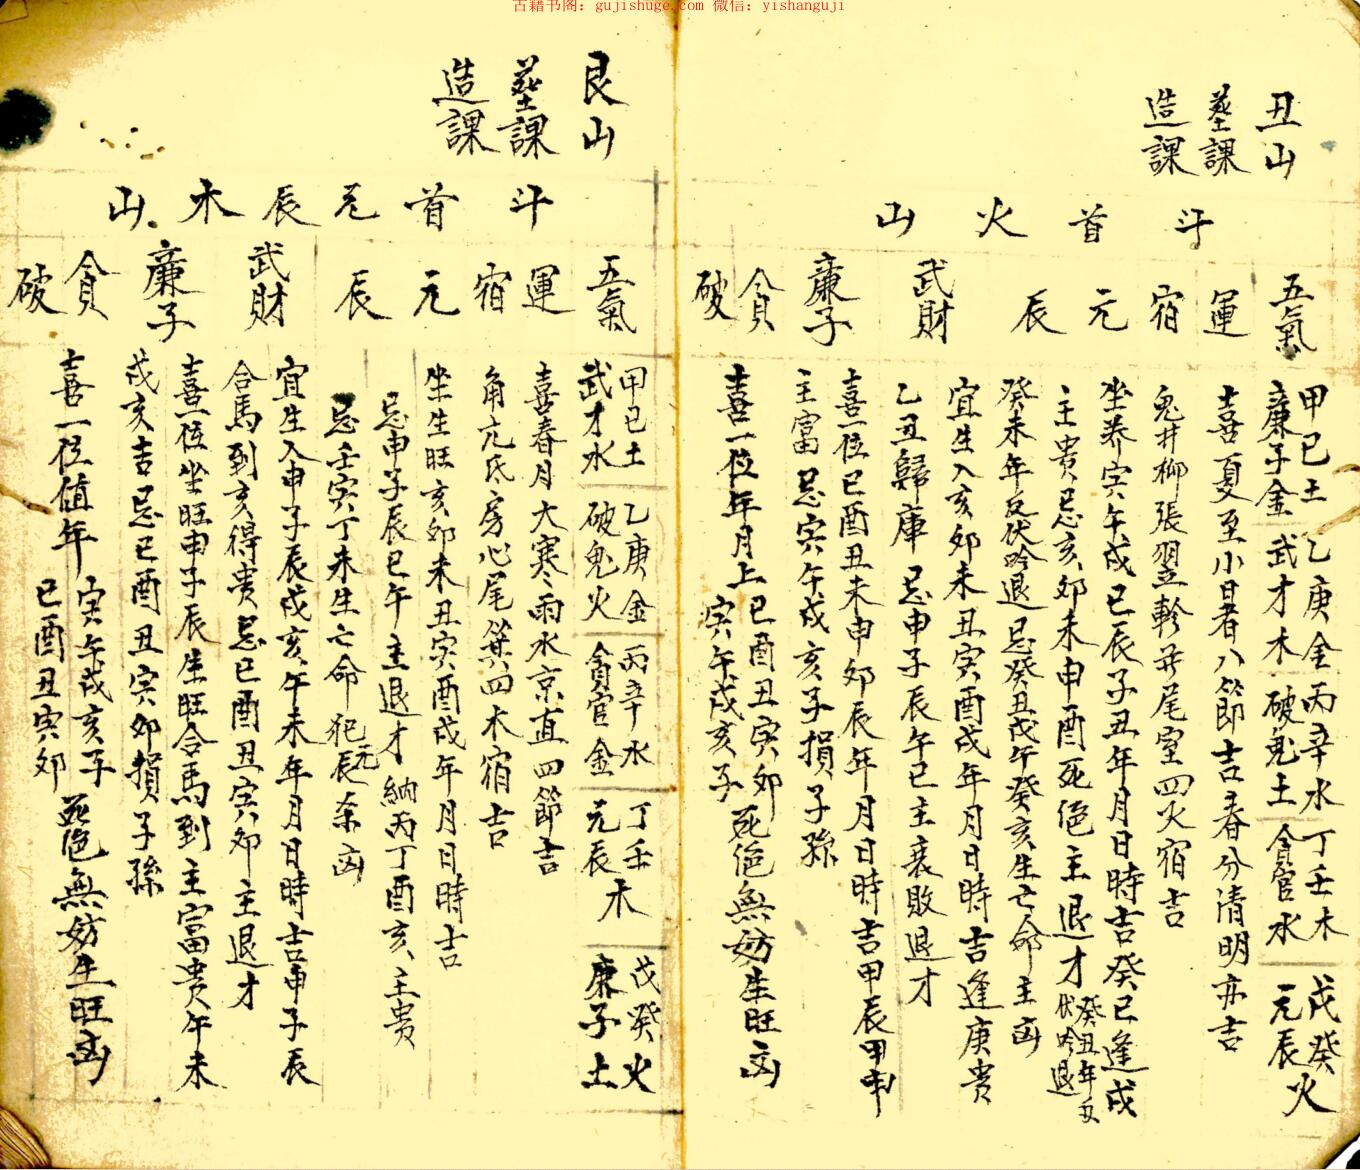 古籍书阁：gujishuge.com 微信：yishanguji
丑山
葬課
造課
斗首火山
五氣
甲己土 廉子金
乙庚金 武才木
丙辛水 破鬼土
丁壬木 貪官水
戊癸火 元辰
運
喜夏至小暑八節吉春分清明亦吉
宿
鬼井柳張翌軫并尾室四火宿吉
元辰
坐养寅午戌巳辰子丑年月日時吉癸巳逢戌
主贵忌亥卯未申酉死绝主退才癸丑年反伏吟退
癸未年反伏吟退忌癸丑戊午癸亥生亡命主凶
武財
宜生入亥卯未丑寅酉戌年月日時吉逢庚貴
乙丑歸庫忌申子辰午巳主衰敗退才
廉子
喜一位巳酉丑未申卯辰年月日時吉甲辰甲申
主富忌寅午戌亥子損子孫
貪破
喜一位年月上巳酉丑寅卯寅午戌亥子死绝無妨生旺凶
艮山
葬課
造課
斗首元辰木山
五氣
甲己土 武才水
乙庚金 破鬼火
丙辛水 貪官金
丁壬木 元辰
戊癸火 廉子土
運
喜春月大寒雨水京直四節吉
宿
角亢氐房心尾箕四木宿吉
元辰
坐生旺亥卯未丑寅酉戌年月日時吉
忌申子辰巳午主退才納丙丁酉亥主贵
忌壬寅丁未生亡命犯元辰杀凶
武財
宜生入申子辰戌亥午未年月日時吉申子辰
合馬到亥得贵忌巳酉丑寅卯主退才
廉子
喜一位坐旺申子辰生旺合馬到主富贵午未
戌亥吉忌巳酉丑寅卯損子孫
貪破
喜一位值年寅午戌亥子巳酉丑寅卯死绝無妨生旺凶